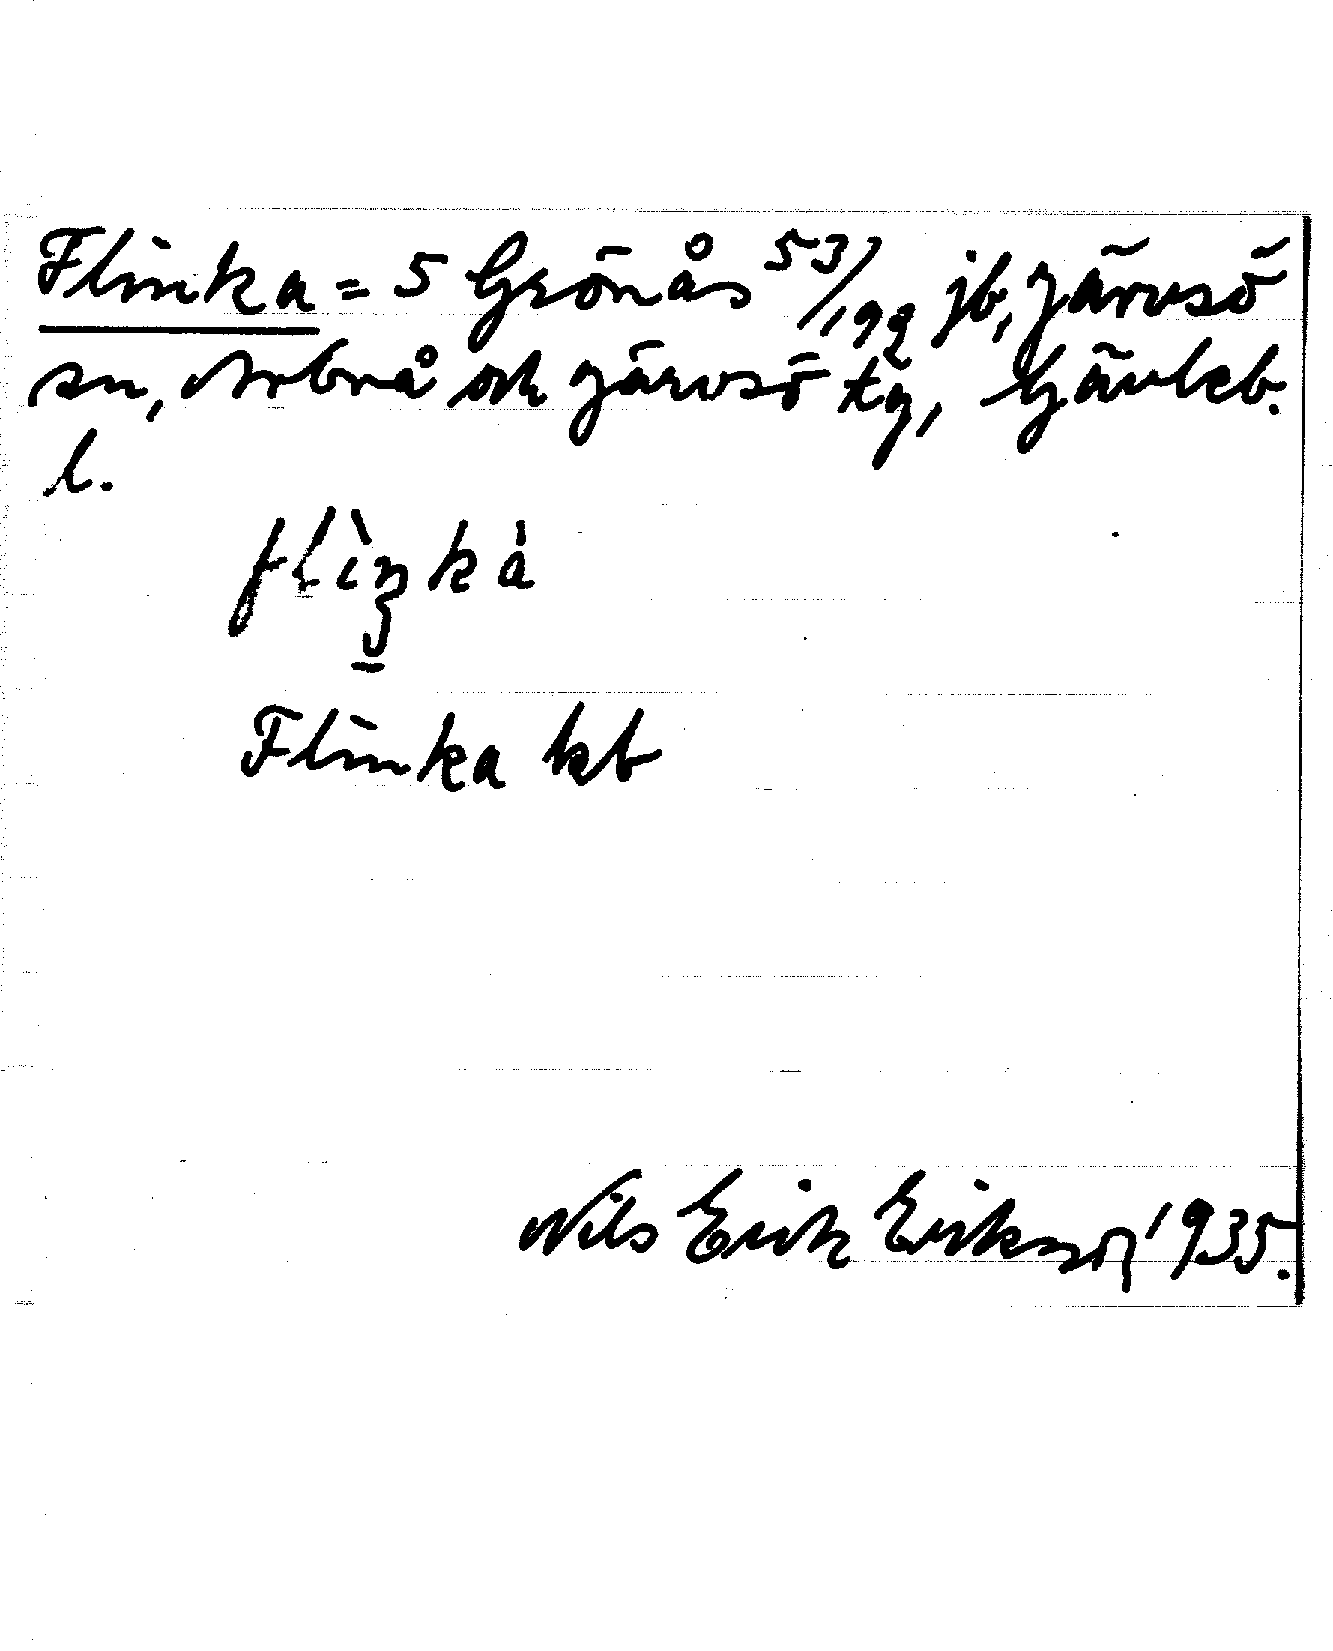 Flinka = 5 Grönås 53/199 jb, Järvsö
sn, Arbrå och Järvsö tg, Gävleb.
l.
flìŋkà
Flinka kb
Nils Erik Erikson 1935.